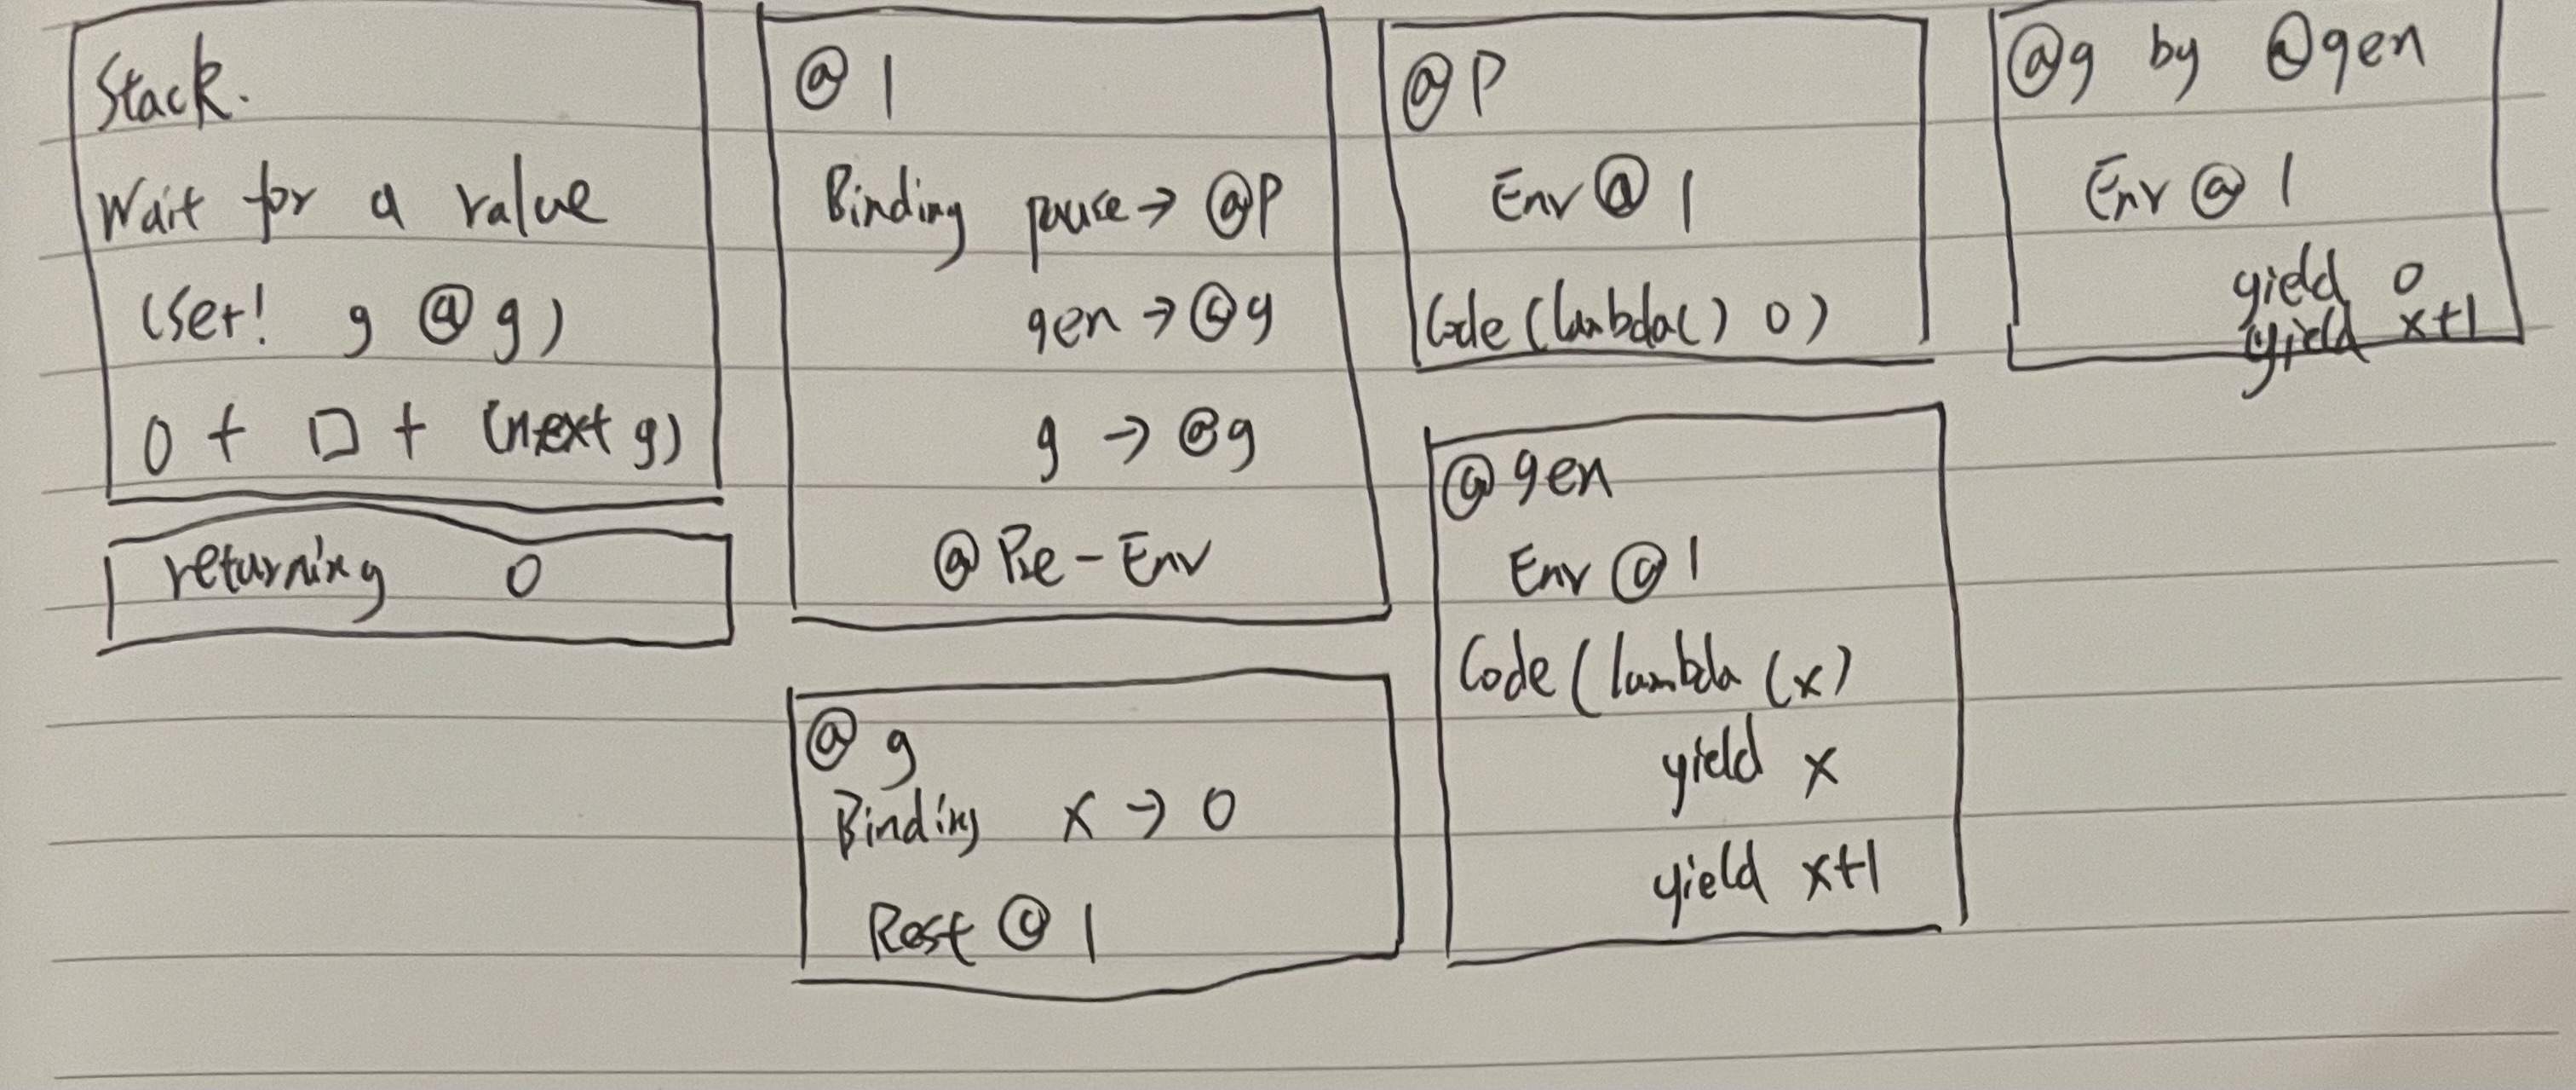 Stack.
Wait for a value
(set! g @g)
0 + □ + (next g)
returning 0
@1
Binding pause → @P
gen → @g
g → @g
@Pre-Env
@g
Binding x → 0
Rest @1
@P
Env @1
Code (lambda() 0)
@gen
Env @1
Code (lambda (x)
yield x
yield x+1
@g by @gen
Env @1
yield 0
yield x+1